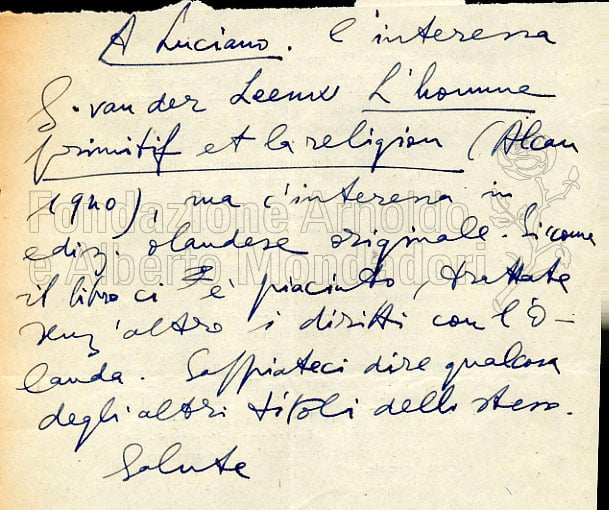 A Luciano. C'interessa
G. van der Leeuw L'homme
primitif et la religion (Alcan
1940), ma c'interessa in
ediz. olandese originale. Siccome
il libro ci è piaciuto, trattate
senz'altro i diritti con l'O-
landa. Sappiateci dire qualcosa
degli altri titoli dello stesso.
Salute
Fondazione Arnoldo
e Alberto Mondadori